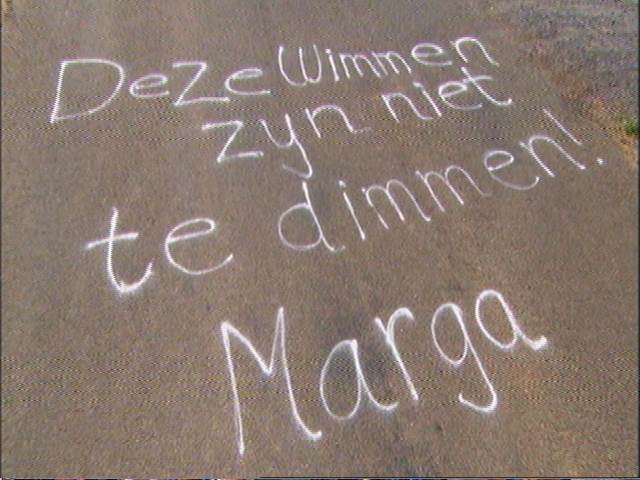 Deze Wimmen
zyn niet
te dimmen!
Marga